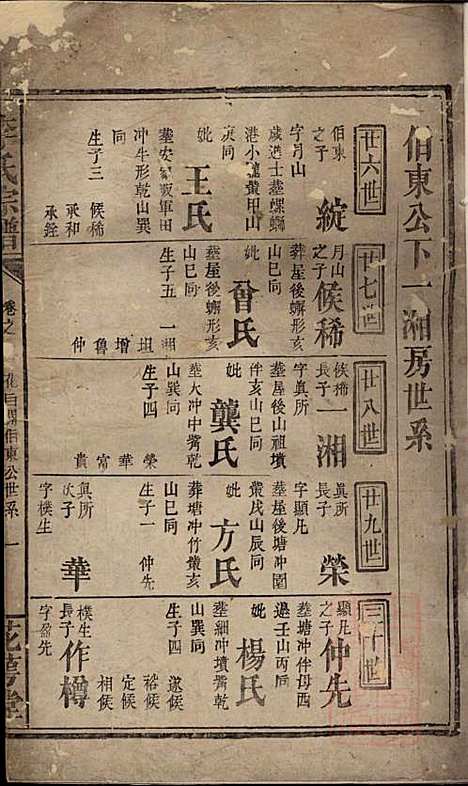 伯東公下一湘房世系
廿六世
伯東
之子
綻
字月山
歲進士塟螺螄
港小龍叢甲山
庚同
妣
王氏
塟安
軍田
冲牛形乾山巽
同
生子三
候稀
承和
承銓
廿七世
月山
之子
候稀
葬屋後蠏形亥
山巳同
妣
曾氏
塟屋後蠏形亥
山巳同
生子五
一湘
坦
增
魯
仲
廿八世
候稀
長子
一湘
字眞所
塟屋後山祖墳
伴亥山巳同
妣
龔氏
塟大冲中嘴乾
山巽同
生子四
榮
華
富
貴
廿九世
眞所
長子
榮
字顯凡
塟屋後塘冲園
叢戌山辰同
妣
方氏
葬塘冲竹叢亥
山巳同
生子一
仲先
眞所
次子
華
字樸生
三十世
顯凡
之子
仲先
塟塘冲伴母酉
邊壬山丙同
妣
楊氏
塟細冲墳嘴乾
山巽同
生子四
遂候
裕候
定候
相候
樸生
長子
作樽
字盈先
氏宗譜
卷之
伯東公世系
一
花萼堂